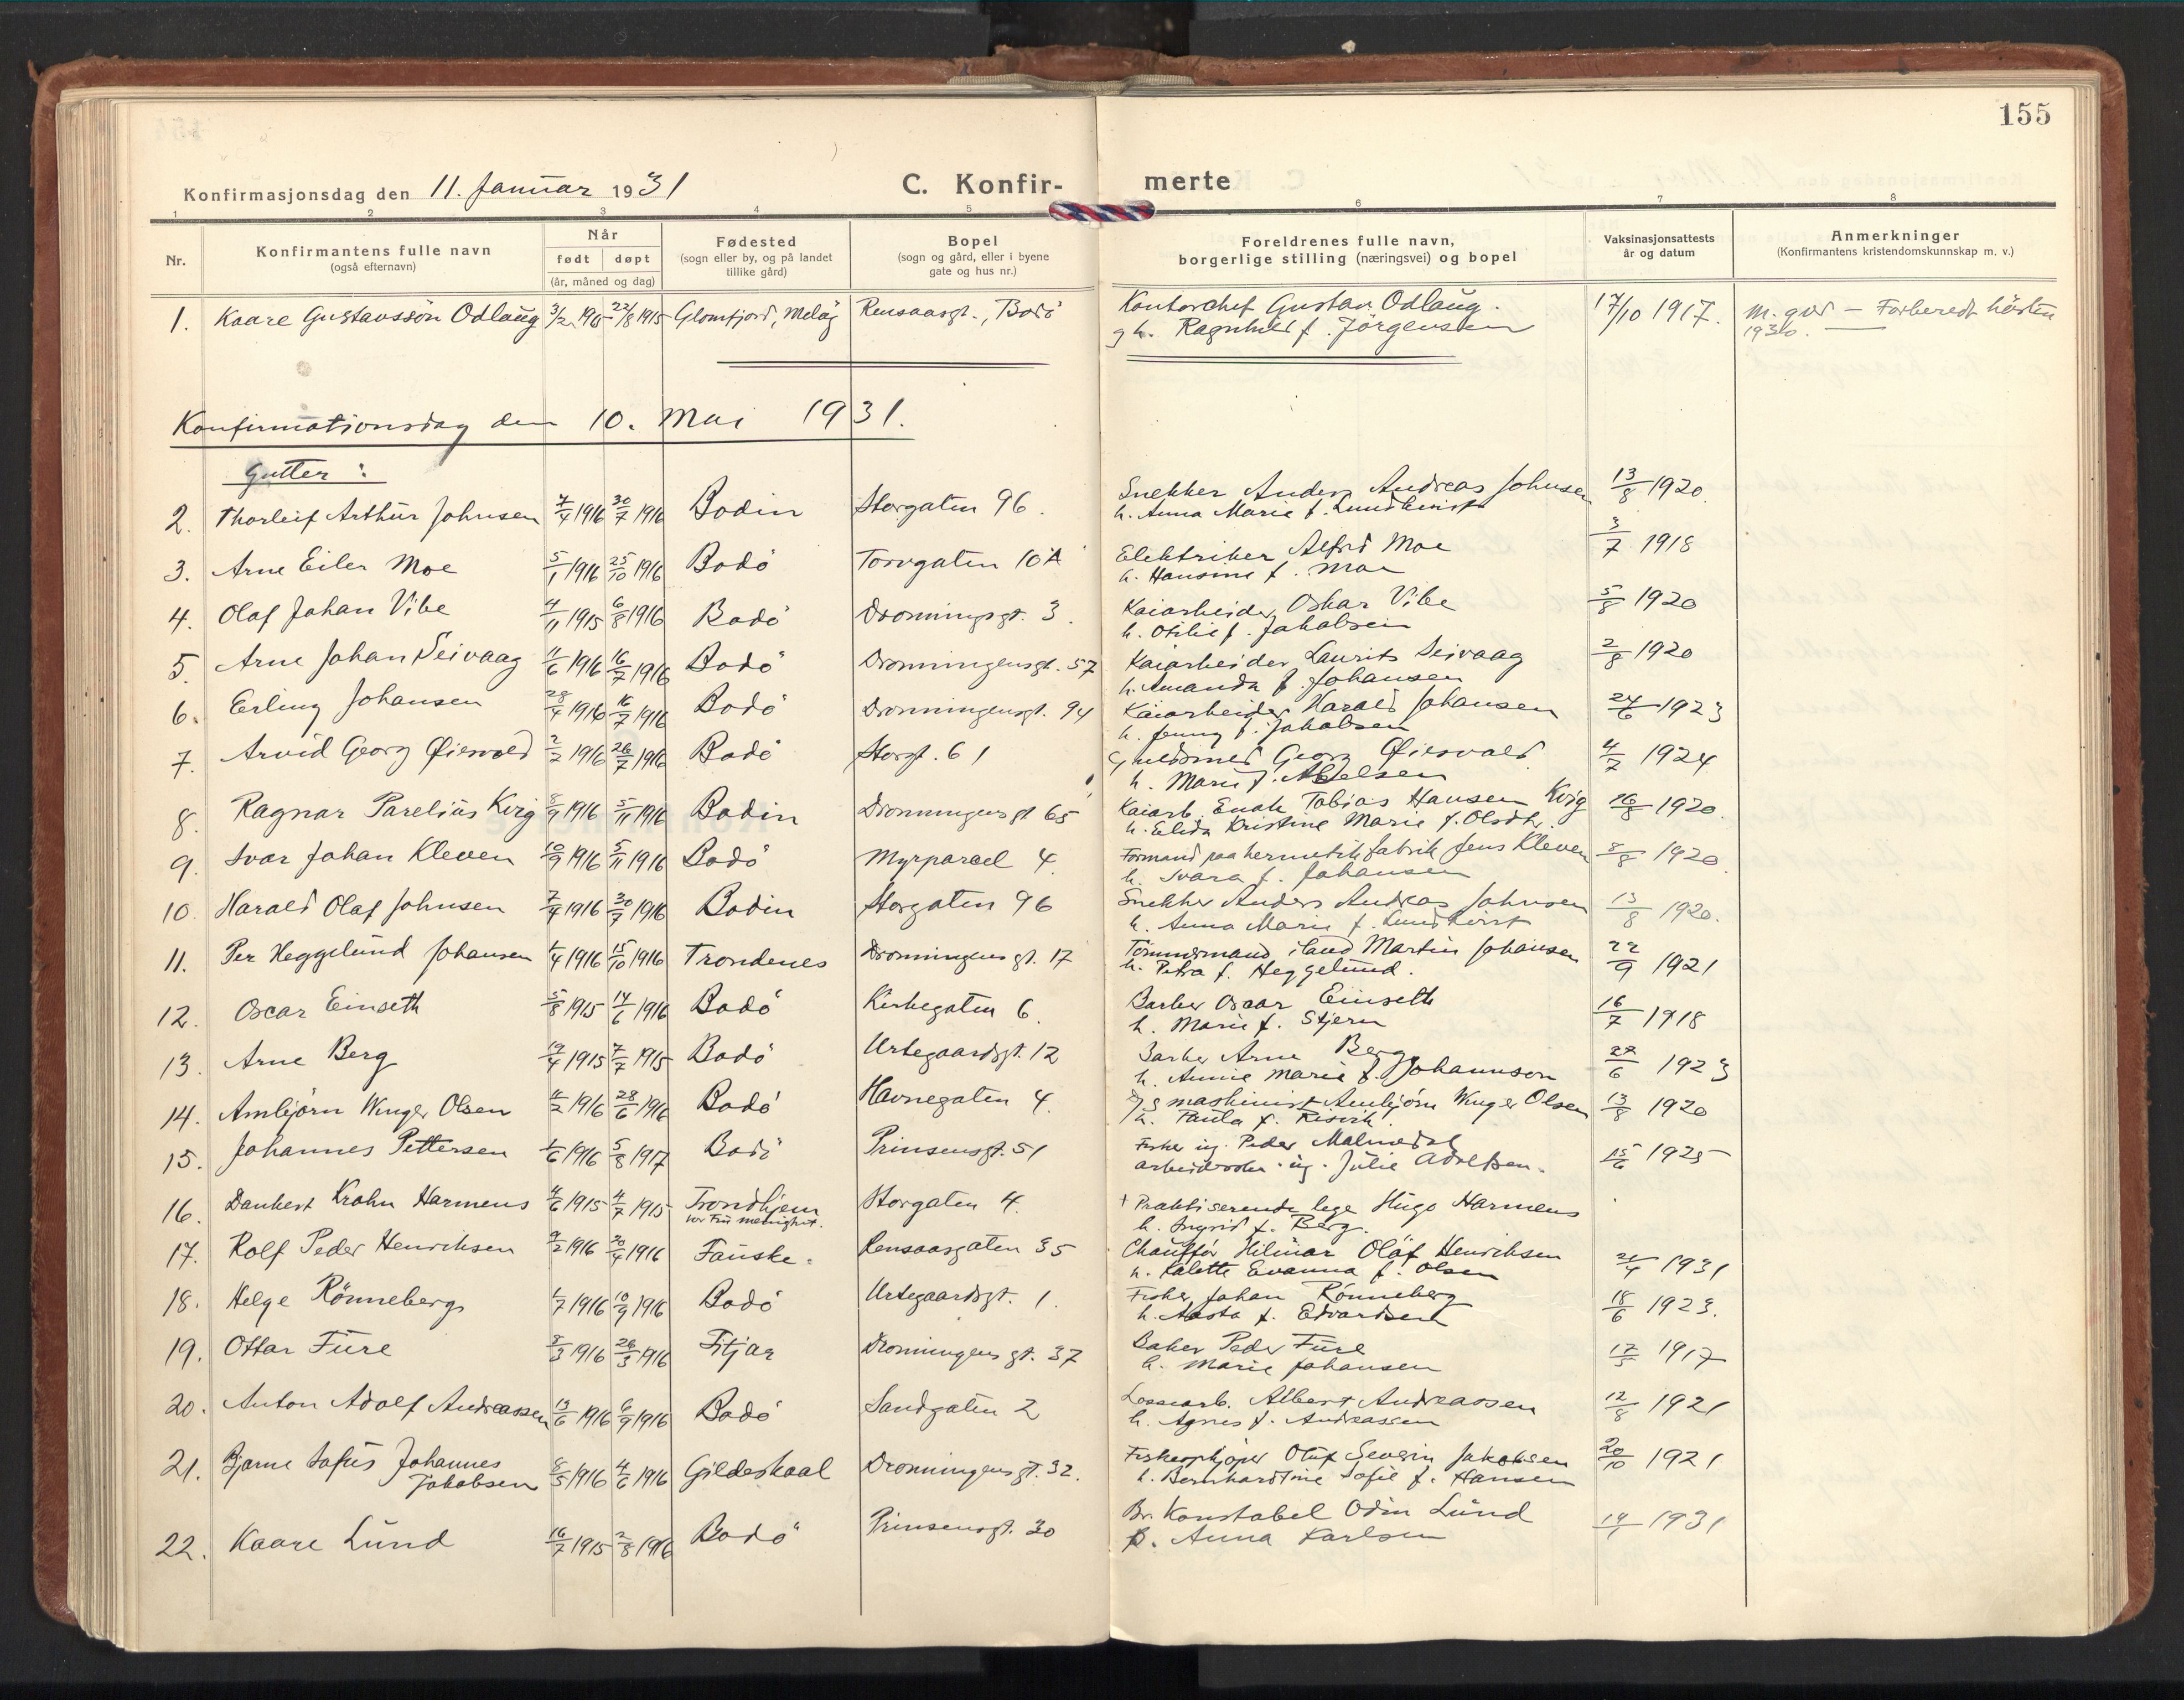 155
Konfirmasjonsdag den 11. Januar 1931
C. Konfir- merte
1 2 3 4 5 6 7 8
Nr.
Konfirmantens fulle navn
(også efternavn)
Når
født døpt
(år, måned og dag)
Fødested
(sogn eller by, og på landet
tillike gård)
Bopel
(sogn og gård, eller i byene
gate og hus nr.)
Foreldrenes fulle navn,
borgerlige stilling (næringsvei) og bopel
Vaksinasjonsattests
år og datum
Anmerkninger
(Konfirmantens kristendomskunnskap m. v.)
1. Kaare Gustavssön Odlaug 3/2 1915 22/8 1915 Glomfjord, Melöy Rensaasgt., Bodö Kontorchef Gustav Odlaug. 17/10 1917. M. god — Forberedt hösten
g h. Ragnhild f. Jörgensen 1930.
Konfirmationsdag den 10. Mai 1931.
Gutter:
2. Thorleif Arthur Johnsen 7/4 1916 30/7 1916 Bodin Storgaten 96. Snekker Anders Andreas Johnsen 13/8 1920.
h. Anna Marie f. Lundkvist
3. Arne Eiler Moe 5/1 1916 25/10 1916 Bodö Torvgaten 10A Elektriker Alfred Moe 3/7 1918
h. Hansine f. Moe
4. Olaf Johan Vibe 4/11 1915 6/8 1916 Bodö Dronningsgt. 3. Kaiarbeider Oskar Vibe 5/8 1920
h. Otilie f. Jakobsen
5. Arne Johan Seivaag 11/6 1916 16/7 1916 Bodö Dronningensgt. 57 Kaiarbeider Laurits Seivaag 2/8 1920
h. Amanda f. Johansen
6. Erling Johansen 28/4 1916 16/7 1916 Bodö Dronningensgt. 94 Kaiarbeider Harald Johansen 27/6 1923
h. Jenny f. Jakobsen
7. Arvid Georg Øiesvold 2/2 1916 26/7 1916 Bodö Storgt. 61 Guldsmed Georg Øiesvold 4/7 1924
h. Marie f. Abelsen
8. Ragnar Parelius Kvig 8/9 1916 5/11 1916 Bodin Dronningensgt 65 Kaiarb. Enok Tobias Hansen Kvig 16/8 1920.
h. Elida Kristine Marie f. Olsdtr.
9. Ivar Johan Kleven 10/9 1916 5/11 1916 Bodö Myrparcel 4. Formand paa hermetikfabrik Jens Kleven 8/8 1920.
h. Svara f. Johansen
10. Harald Olaf Johnsen 7/4 1916 30/7 1916 Bodin Storgaten 96 Snekker Anders Andreas Johnsen 13/8 1920.
h. Anna Marie f. Lundkvist
11. Per Heggelund Johansen 1/4 1916 15/10 1916 Trondenes Dronningens gt. 17 Tömmermand iland Martin Johansen 22/9 1921
h. Petra f. Heggelund.
12. Oscar Einseth 5/8 1915 14/6 1916 Bodö Kirkegaten 6. Barber Oscar Einseth 16/7 1918
h. Marie f. Stjern
13. Arne Berg 19/4 1915 7/7 1915 Bodö Urtegaardsgt. 12 Barber Arne Berg 27/6 1923
h. Annie Marie f. Johannson
14. Arnbjörn Winger Olsen 11/2 1916 28/6 1916 Bodö Havnegaten 4. maskinist Arnbjörn Winger Olsen 13/8 1920
h. Paula f. Risvik.
15. Johannes Pettersen 1/6 1916 5/8 1917 Bodö Prinsensgt. 51 Fisker ug. Peder Malmedal 15/6 1925
ug. Julie Adolfsen.
16. Dankert Krohn Harmens 4/6 1915 4/7 1915 Trondhjem Storgaten 4. † Praktiserende lege Hugo Harmens
Vor Fru menighet. h. Ingrid f. Berg.
17. Rolf Peder Henriksen 9/2 1916 20/4 1916 Fauske. Rensaasgaten 35 Chaufför Hilmar Olaf Henriksen 21/4 1931
h. Kalette Evanna f. Olsen
18. Helge Rönneberg 1/7 1916 10/9 1916 Bodö Urtegaardsgt. 1. Fisker Johan Rönneberg 18/6 1923.
h. Aasta f. Edvardsen
19. Ottar Füre 8/3 1916 26/3 1916 Fitjar Dronningens gt. 37 Baker Peder Füre 17/5 1917
h. Marie Johansen
20. Anton Adolf Andreassen 13/6 1916 6/9 1916 Bodö Sandgaten 2 Lossearb. Albert Andreassen 12/8 1921
h. Agnes f. Andreassen
21. Bjarne Sofus Johannes 8/5 1916 4/6 1916 Gildeskaal Dronningens gt. 32. Fiskeopkjöper Oluf Severin Jakobsen 20/10 1921
Jakobsen h. Bernhardine Sofie f. Hansen
22. Kaare Lund 16/7 1915 2/8 1916 Bodö Prinsensgt. 30 Br. Konstabel Odin Lund 19/1 1931
h. Anna Karlsen